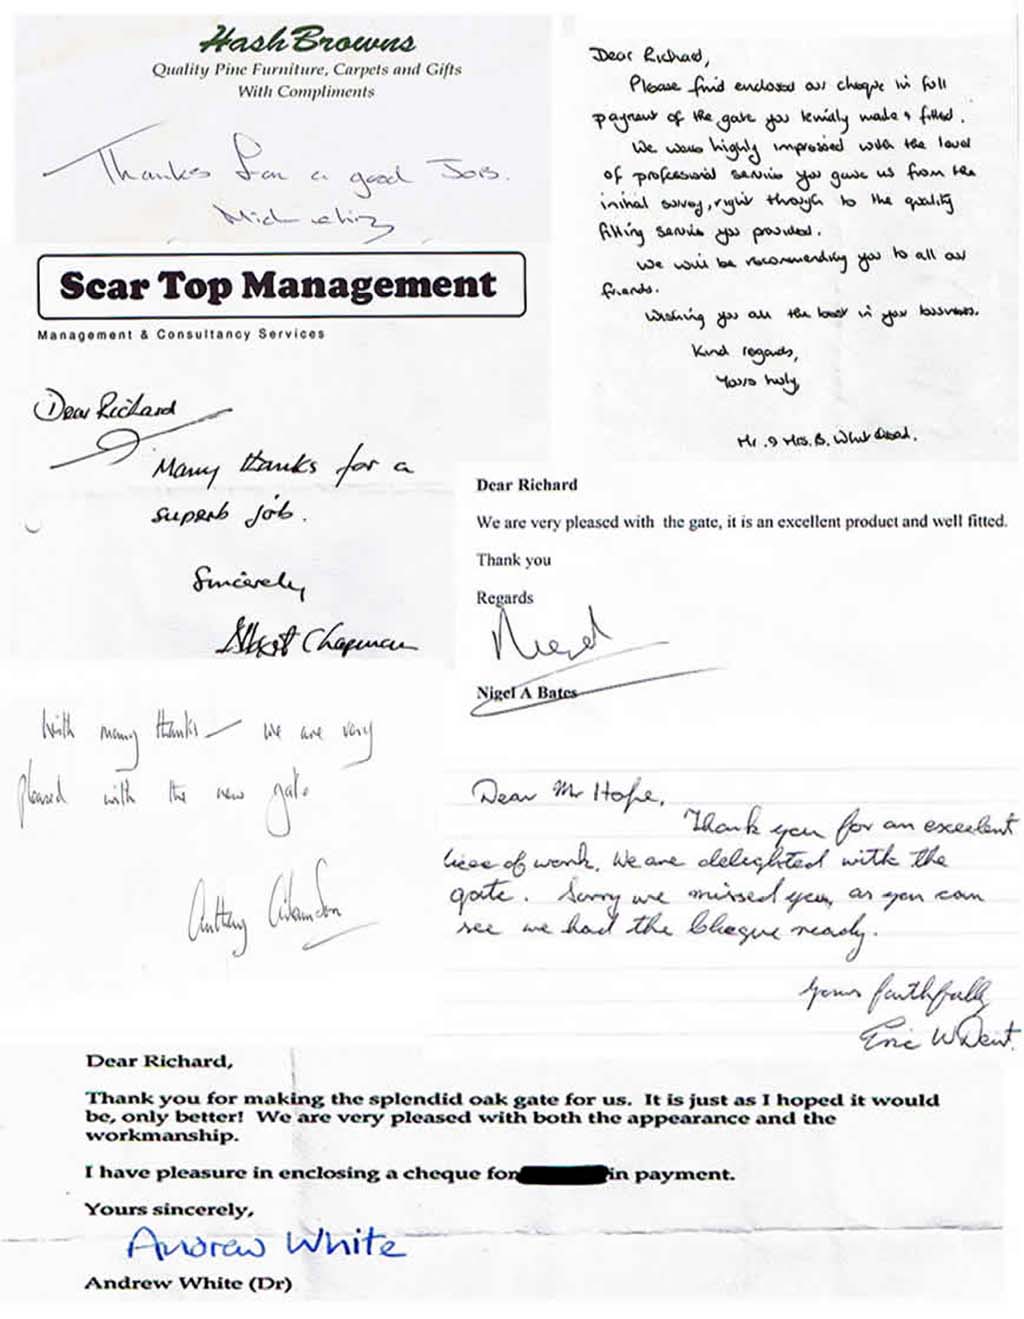 HashBrowns
Quality Pine Furniture, Carpets and Gifts
With Compliments
Thanks for a good Job.
Scar Top Management
Management & Consultancy Services
Dear Richard
Many thanks for a
superb job.
Sincerely
Chapman
Dear Richard,
Please find enclosed our cheque in full
payment of the gate you kindly made & fitted.
We were highly impressed with the level
of professional service you gave us from the
initial survey, right through to the quality
fitting service you provided.
We will be recommending you to all our
friends.
Wishing you all the best in your business.
Kind regards,
Yours truly,
Mr. & Mrs. B.
Dear Richard
We are very pleased with the gate, it is an excellent product and well fitted.
Thank you
Regards
Nigel
Nigel A Bates
With many thanks – we are very
pleased with the new gate
Anthony
Dear Mr Hope,
Thank you for an excelent
of work. We are delighted with the
gate. Sorry we missed you, as you can
see we had the Cheque ready.
Yours faithfully
Eric W Dent.
Dear Richard,
Thank you for making the splendid oak gate for us. It is just as I hoped it would
be, only better! We are very pleased with both the appearance and the
workmanship.
I have pleasure in enclosing a cheque for in payment.
Yours sincerely,
Andrew White
Andrew White (Dr)